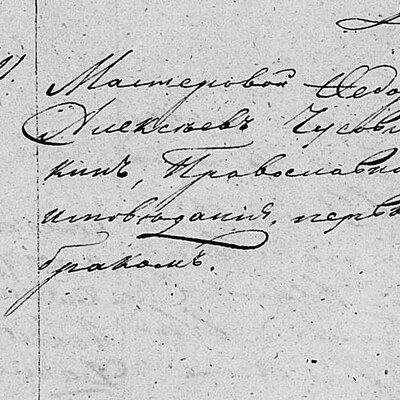 Мастеровой Ѳедо
Алексѣевъ Чусов
кинъ, Православна
исповѣданія, перв
бракомъ.